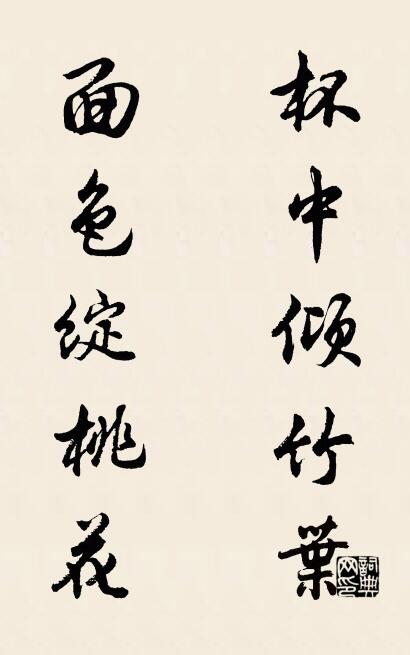 杯中倾竹葉
面色绽桃花
詞典网印